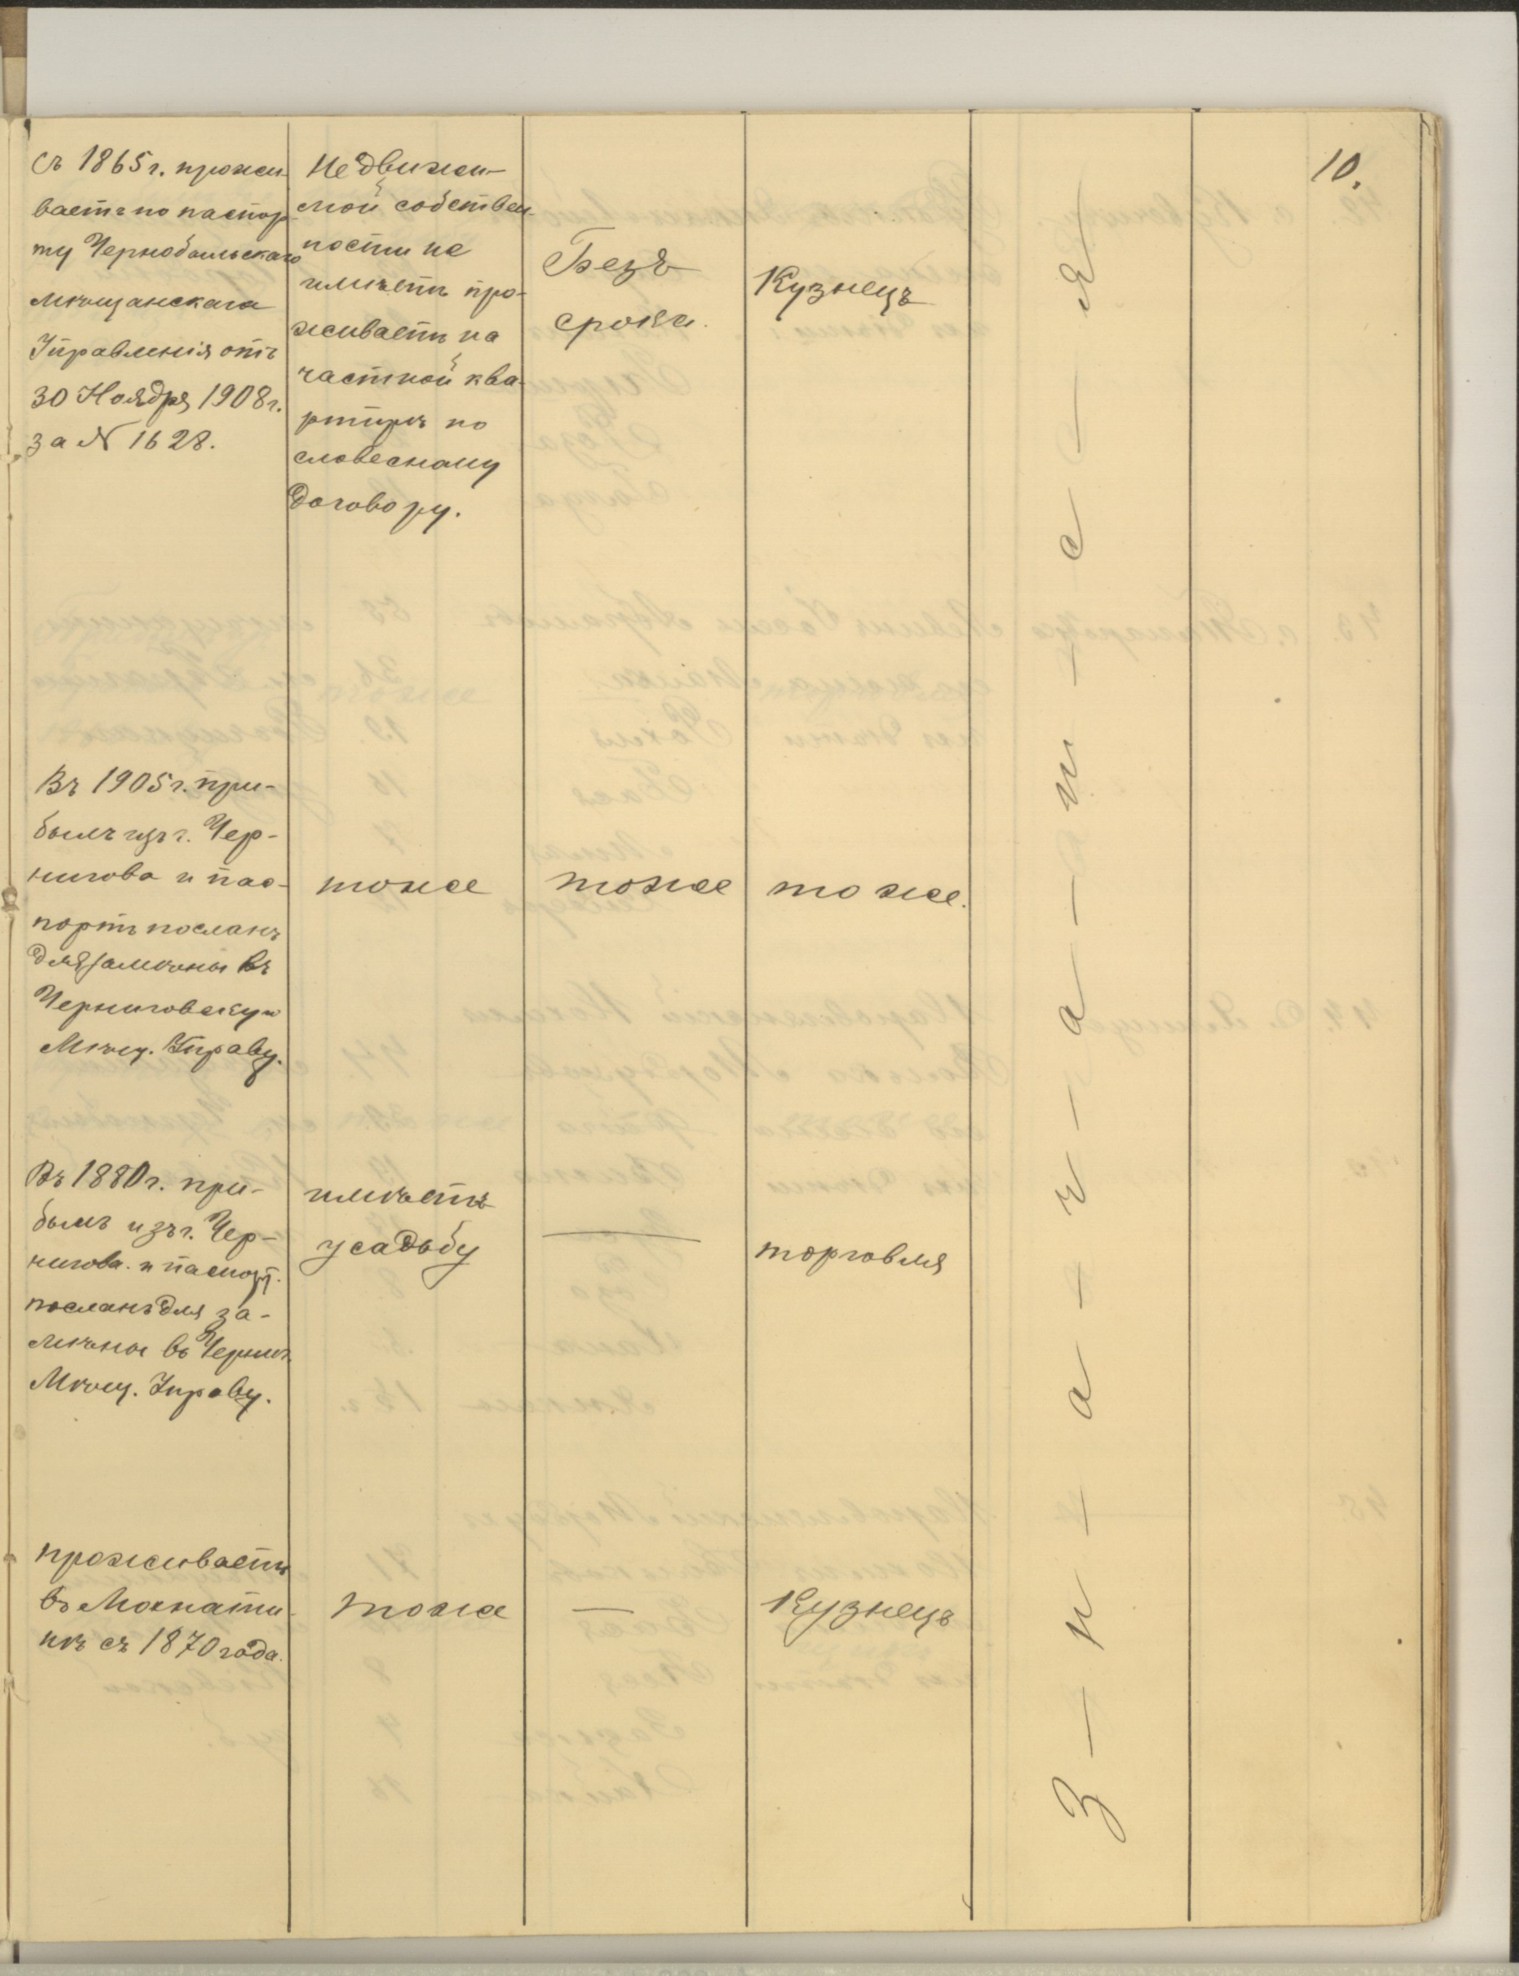 10.
Съ 1865 г. прожи-
ваетъ по паспор-
ту Чернобыльскаго
мѣщанскаго
Управленія отъ
30 Ноября 1908 г.
за № 1628.
Недвижи-
мой собствен-
ности не
имѣетъ про-
живаетъ на
частной ква-
ртирѣ по
словесному
договору.
Безъ
срока.
Кузнецъ
Въ 1905 г. при-
былъ изъ г. Чер-
нигова и пас-
портъ посланъ
для замѣны въ
Черниговскую
Мѣщ. Управу.
тоже
тоже
тоже.
Въ 1880 г. при-
былъ изъ г. Чер-
нигова и паспорт.
посланъ для за-
мѣны въ Черниг.
Мѣщ. Управу.
имѣетъ
усадьбу
—
торговля
проживаетъ
въ
съ 1870 года.
тоже
—
Кузнецъ
З-н-а-ч-а-и-с-я